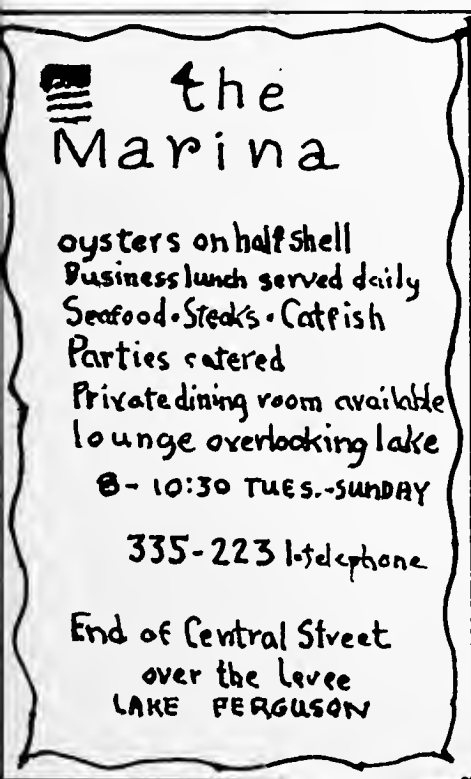 the
Marina
oysters on half shell
Business lunch served daily
Seafood • Steaks • Catfish
Parties catered
Private dining room available
lounge overlooking lake
8- 10:30 TUES.-SUNDAY
335-2231-telephone
End of Central Street
over the Levee
LAKE FERGUSON